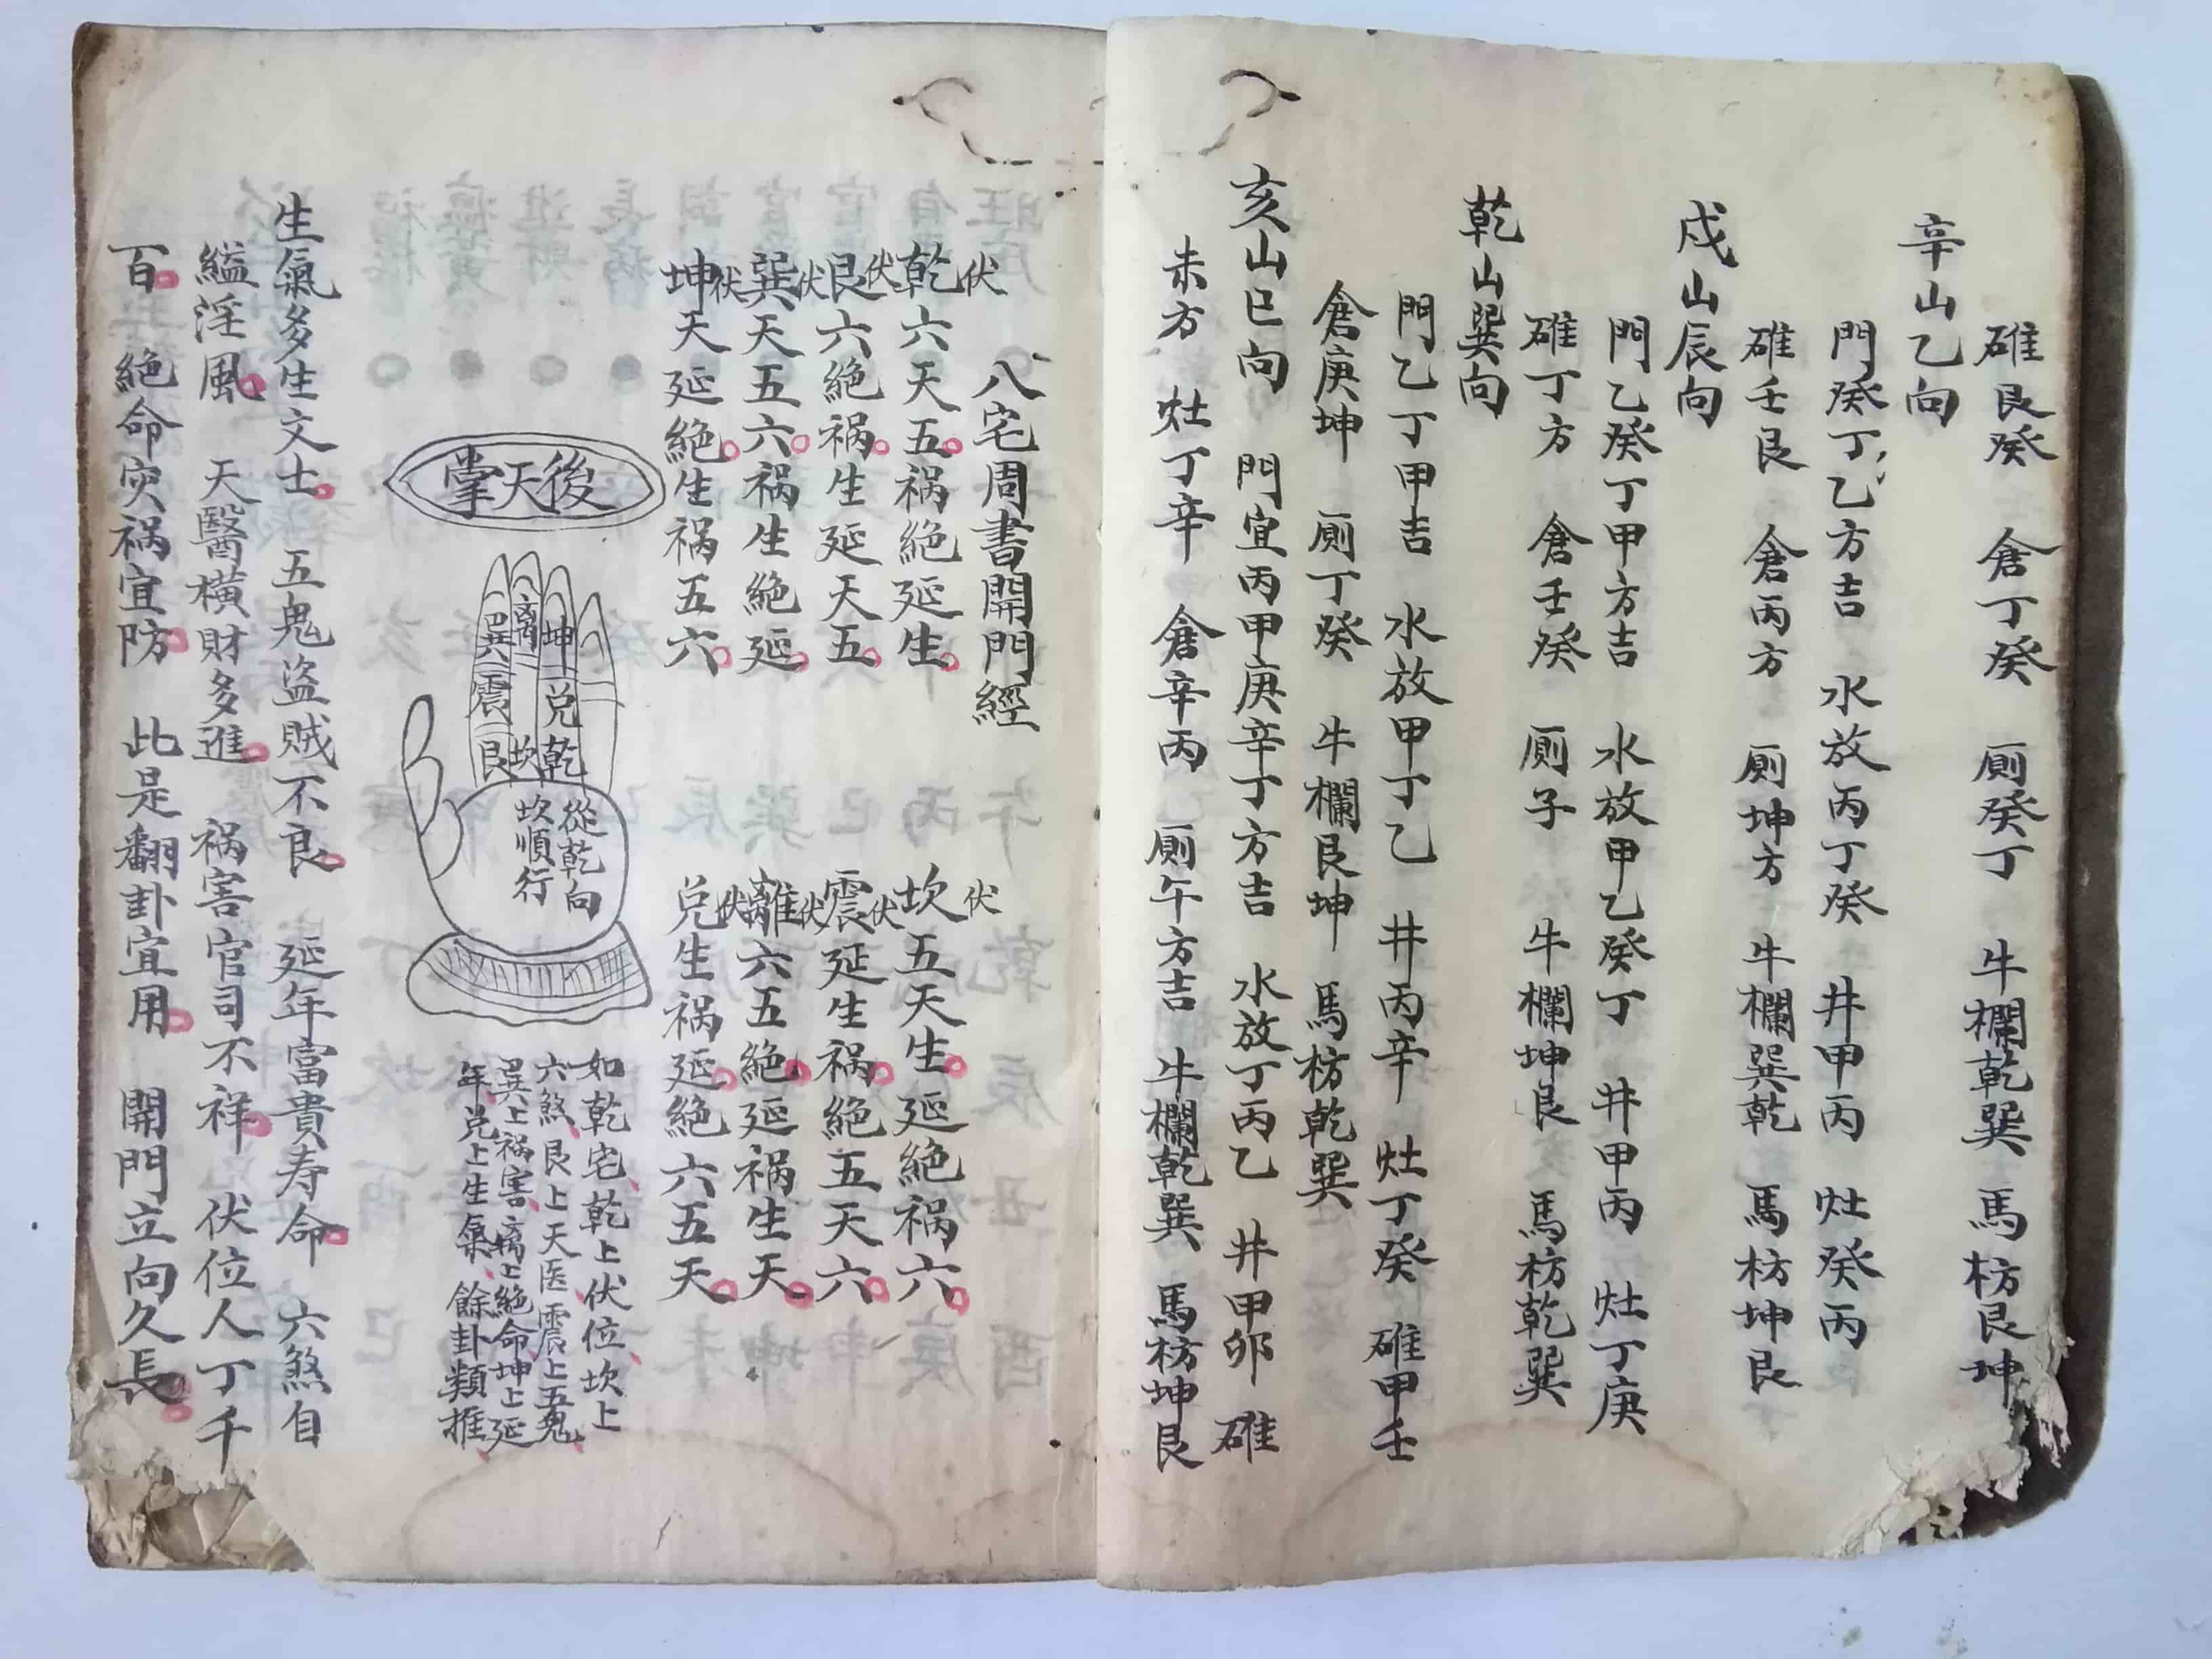 碓艮癸　倉丁癸　厠癸丁　牛欄乾巽　馬枋艮坤
辛山乙向
門癸丁乙方吉　水放丙丁癸　井甲丙　灶癸丙
碓壬艮　倉丙方　厠坤方　牛欄巽乾　馬枋坤艮
戍山辰向
門乙癸丁甲方吉　水放甲乙癸丁　井甲丙　灶丁庚
碓丁方　倉壬癸　厠子　牛欄坤艮　馬枋乾巽
乾山巽向
門乙丁甲吉　水放甲丁乙　井丙辛　灶丁癸　碓甲壬
倉庚坤　厠丁癸　牛欄艮坤　馬枋乾巽
亥山巳向　門宜丙甲庚辛丁方吉　水放丁丙乙　井甲卯　碓
未方　灶丁辛　倉辛丙　厠午方吉　牛欄乾巽　馬枋坤艮
八宅周書開門經
伏
乾六天五祸絶延生
伏
坎五天生延絶祸六
伏
艮六絶祸生延天五
伏
震延生祸絶五天六
伏
巽天五六祸生絶延
伏
離六五絶延祸生天
伏
坤天延絶生祸五六
伏
兑生祸延絶六五天
後天掌
坤
兑
乾
離
坎
巽
震
艮
從乾向
坎順行
如乾宅乾上伏位坎上
六煞艮上天医震上五鬼
巽上祸害离上絶命坤上延
年兑上生氣餘卦類推
生氣多生文士　五鬼盗賊不良　延年富貴寿命　六煞自
縊淫風　天醫横財多進　祸害官司不祥　伏位人丁千
百　絶命灾祸宜防　此是翻卦宜用　開門立向久長